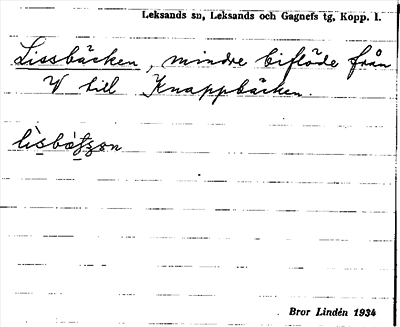 Leksands sn, Leksands och Gagnefs tg, Kopp. l.
Lissbäcken, mindre biflöde från
V till Knappbäcken.
Bror Lindén 1934